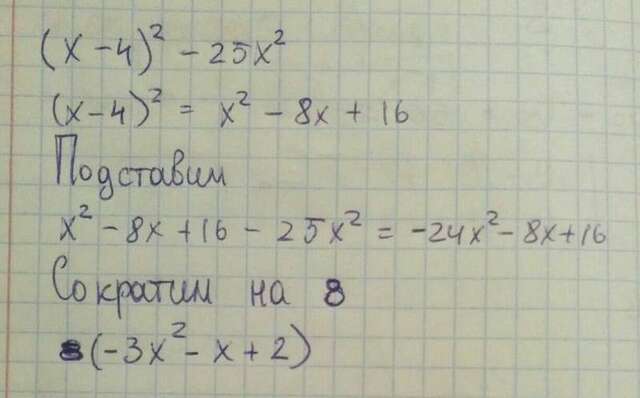 (x-4)² - 25x²
(x-4)² = x² - 8x + 16
Подставим
x² - 8x + 16 - 25x² = -24x² - 8x + 16
Сократим на 8
8(-3x² - x + 2)